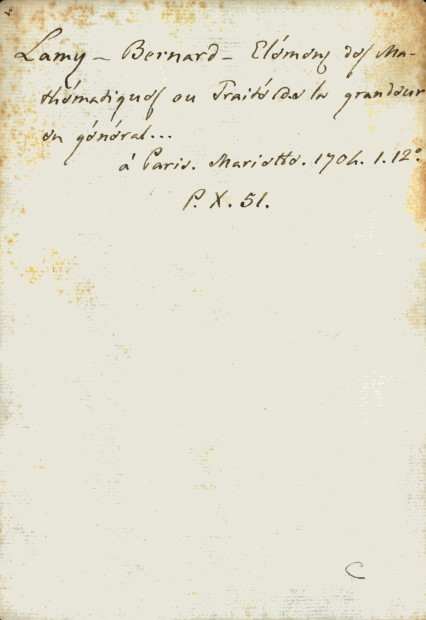 Lamy - Bernard - Elémens des Ma-
thématiques ou Traité de la grandeur
en général...
à Paris. Mariette. 1704. 1. 12°.
P. X. 51.
C